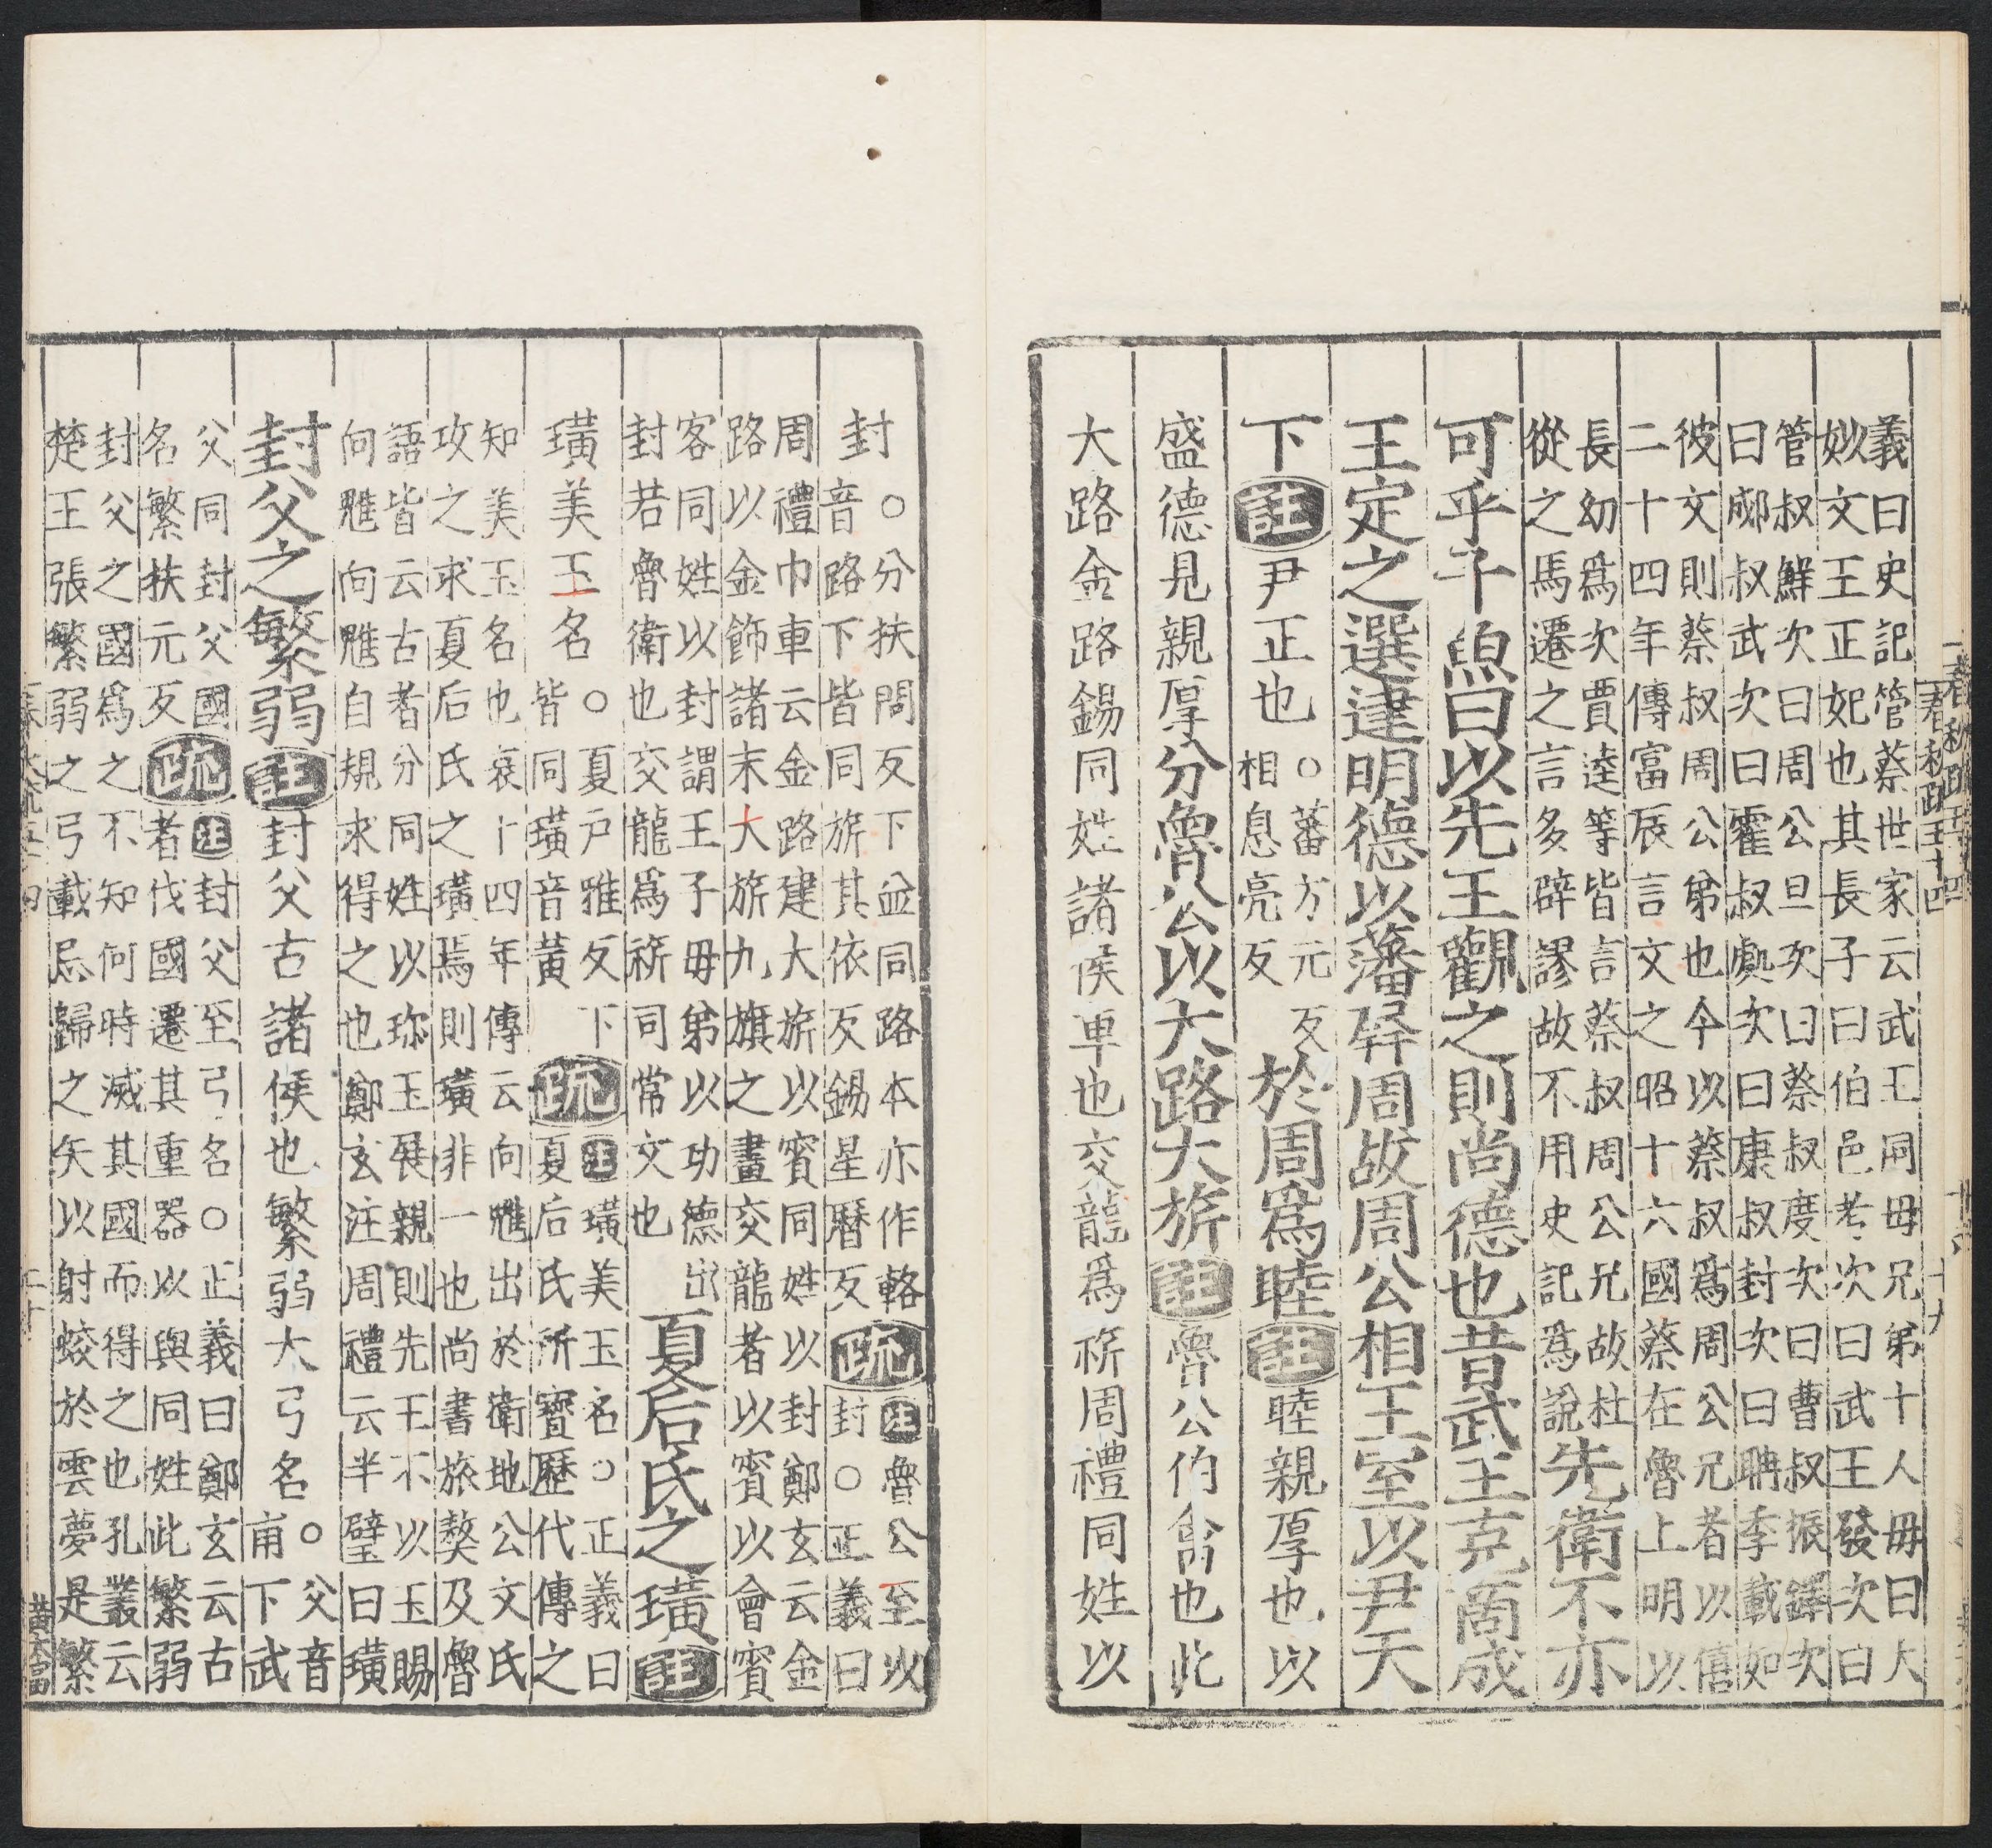 義曰史記管蔡世家云武王同母兄弟十人毋曰大
妙文王正妃也其長子曰伯邑考次曰武王發次曰
管叔鮮次曰周公旦次曰蔡叔度次曰曹叔振鐸次
曰郕叔武次曰霍叔處次曰康叔封次曰聃季載如
彼文則蔡叔周公弟也今以蔡叔爲周公兄者以僖
二十四年傳富辰言文之昭十六國蔡在魯上明以
長幼爲次賈逵等皆言蔡叔周公兄故杜
從之馬遷之言多辟謬故不用史記爲說
先衛不亦
可乎子魚曰以先王觀之則尚德也昔武王克商成
王定之選建明德以藩屏周故周公相王室以尹天
下註尹正也
○蕃方元反
相息亮反
於周爲睦註睦親厚也以
盛德見親厚分魯公以大路大旂註魯公伯禽也此
大路金路錫同姓諸侯車也交龍爲旂周禮同姓以
封
○分扶問反下並同路本亦作輅
音路下皆同旂其依反錫星曆反
疏
註魯公至以
封○正義曰
周禮巾車云金路建大旂以賓同姓以封鄭玄云金
路以金飾諸末大旂九旗之畫交龍者以賓以會賓
客同姓以封謂王子母弟以功德出
封若魯衛也交龍爲旂司常文也
夏后氏之璜註
璜美玉名
○夏戶雅反下
皆同璜音黃
疏
註璜美玉名○正義曰
夏后氏所寶歷代傳之
知美玉名也哀十四年傳云向魋出於衛地公文氏
攻之求夏后氏之璜焉則璜非一也尚書旅獒及魯
語皆云古者分同姓以珎玉展親則先王不以玉賜
向魋向魋自規求得之也鄭玄注周禮云半璧曰璜
封父之繁弱註封父古諸侯也繁弱大弓名
○父音
甫下武
父同封父國
名繁扶元反
疏
註封父至弓名○正義曰鄭玄云古
者伐國遷其重器以與同姓此繁弱
封父之國爲之不知何時滅其國而得之也孔叢云
楚王張繁弱之弓載忘歸之矢以射蛟於雲夢是繁